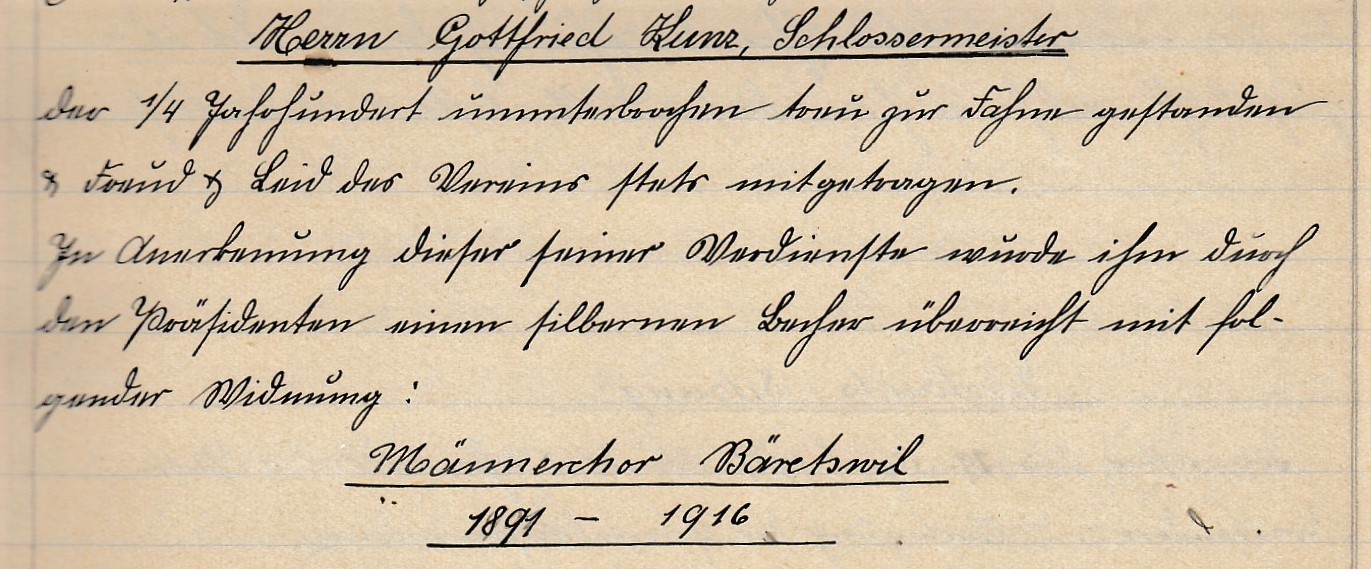 Herrn Gottfried Kunz, Schlossermeister
der 1/4 Jahrhundert ununterbrochen treu zur Fahne gestanden
& Freud & Leid des Vereins stets mitgetragen.
In Anerkennung dieser seiner Verdienste wurde ihm durch
den Präsidenten einen silbernen Becher überreicht mit fol-
gender Widmung:
Männerchor Bäretswil
1891 - 1916